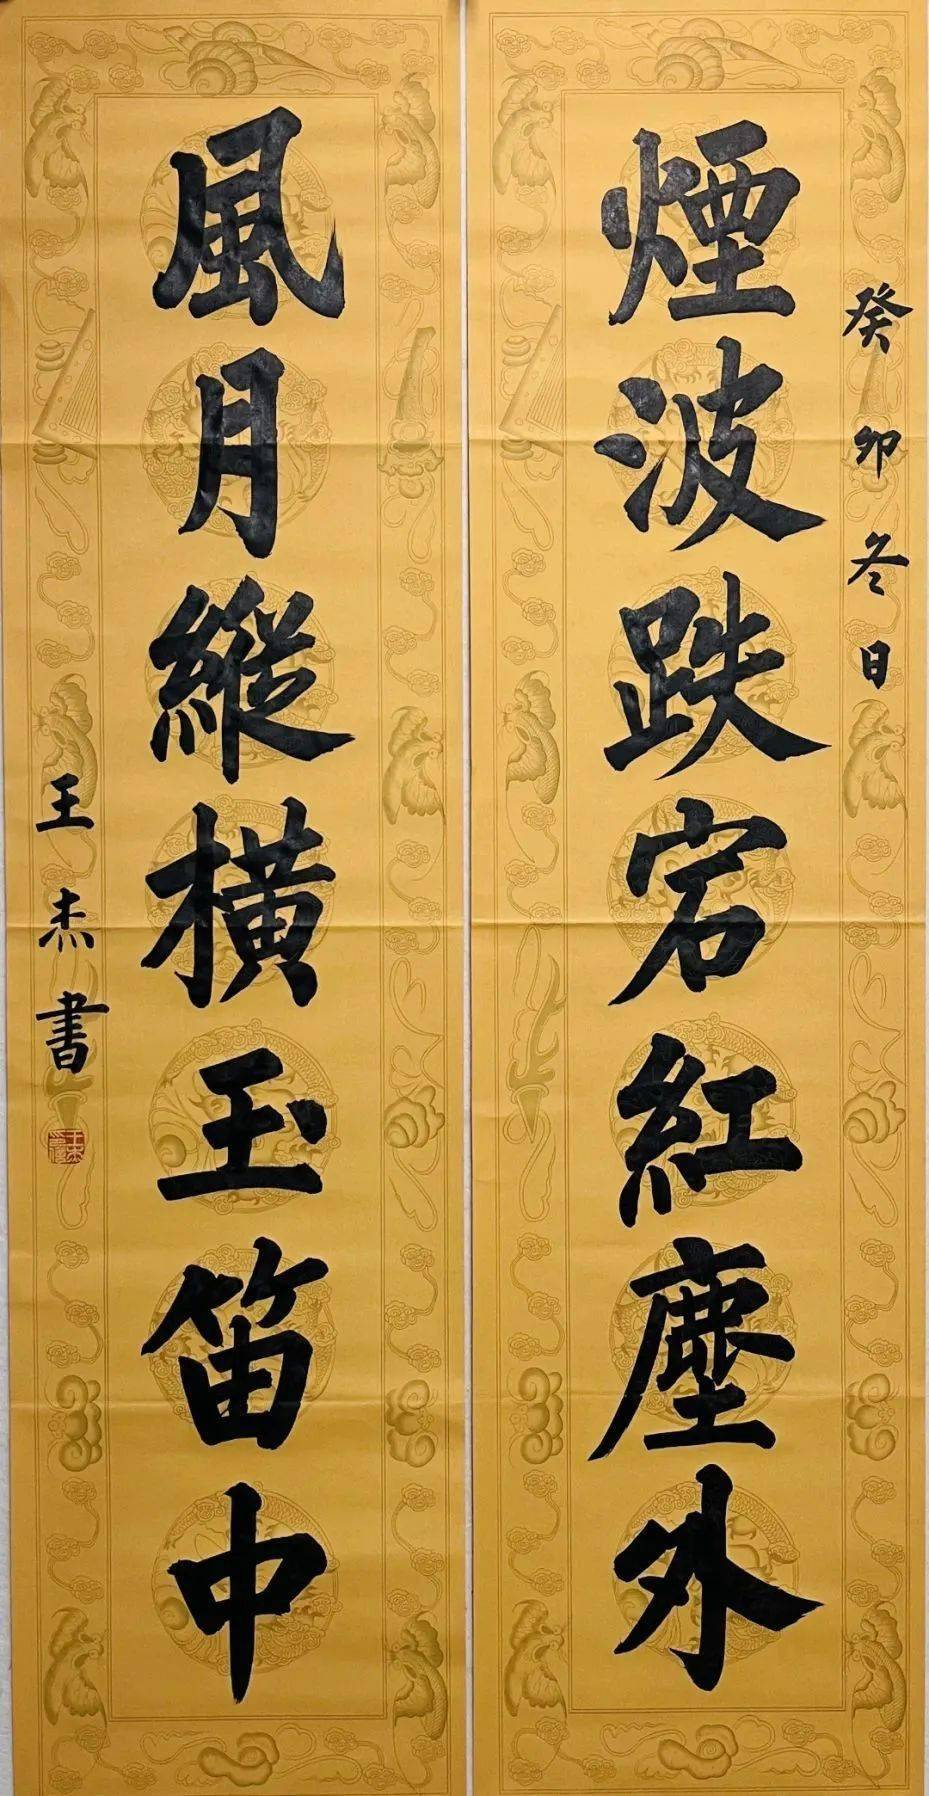 癸卯冬日
煙波跌宕紅塵外
風月縱橫玉笛中
王杰書